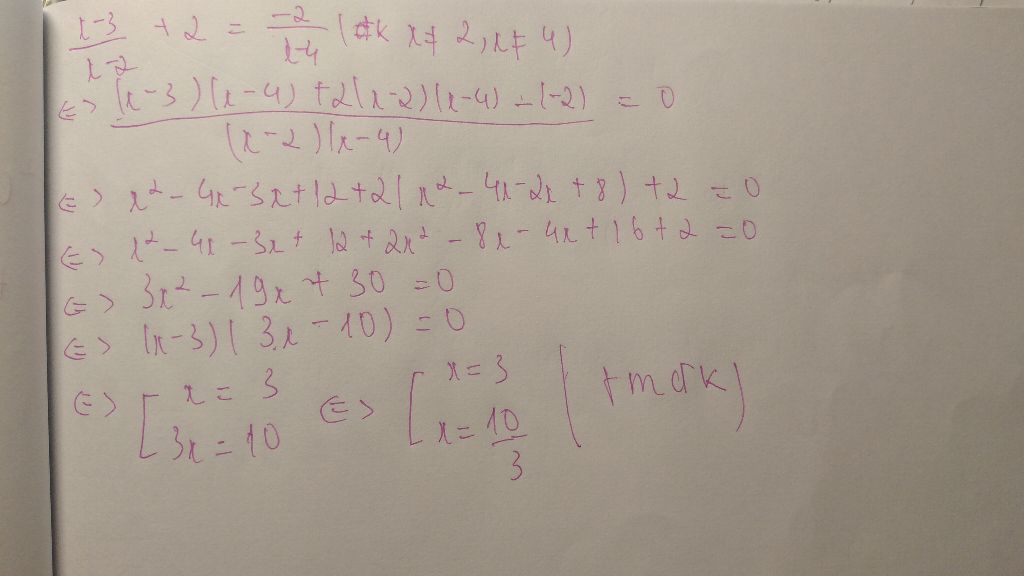 (x-3)/(x-2) + 2 = (-2)/(x-4) (đk x ≠ 2, x ≠ 4)
<=> ((x-3)(x-4) + 2(x-2)(x-4) - (-2))/((x-2)(x-4)) = 0
<=> x² - 4x - 3x + 12 + 2(x² - 4x - 2x + 8) + 2 = 0
<=> x² - 4x - 3x + 12 + 2x² - 8x - 4x + 16 + 2 = 0
<=> 3x² - 19x + 30 = 0
<=> (x-3)(3x-10) = 0
<=> [ x = 3 ; 3x = 10 <=> [ x = 3 ; x = 10/3 (tmđk)